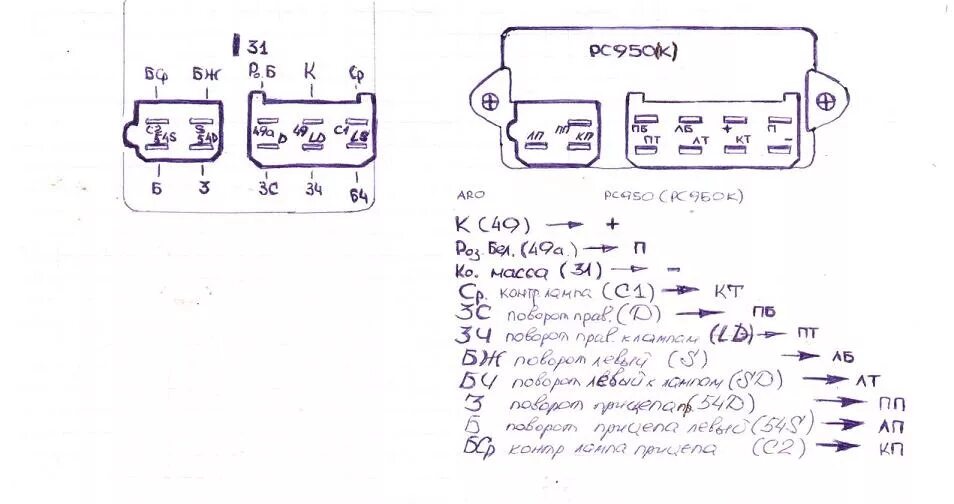 31
БЖ
БЖ
Ро. Б
К
Ср
C2
S
49a
49
C1
54S
54D
D
LD
LS
Б
З
ЗС
ЗЧ
БЧ
РС950(К)
ЛП
ПП
КП
ПБ
ЛБ
+
П
ПТ
ЛТ
КТ
-
ARO
РС950 (РС950К)
К (49) → +
Роз. Бел. (49а.) → П
Ко. масса (31) → -
Ср. контр лампа (С1) → КТ
ЗС поворот прав. (D) → ПБ
ЗЧ поворот прав. к лампам (LD) → ПТ
БЖ поворот левый (S) → ЛБ
БЧ поворот левый к лампам (SD) → ЛТ
З поворот прицепа пр. (54D) → ПП
Б поворот прицепа левый (54S) → ЛП
БСр контр лампа прицепа (С2) → КП